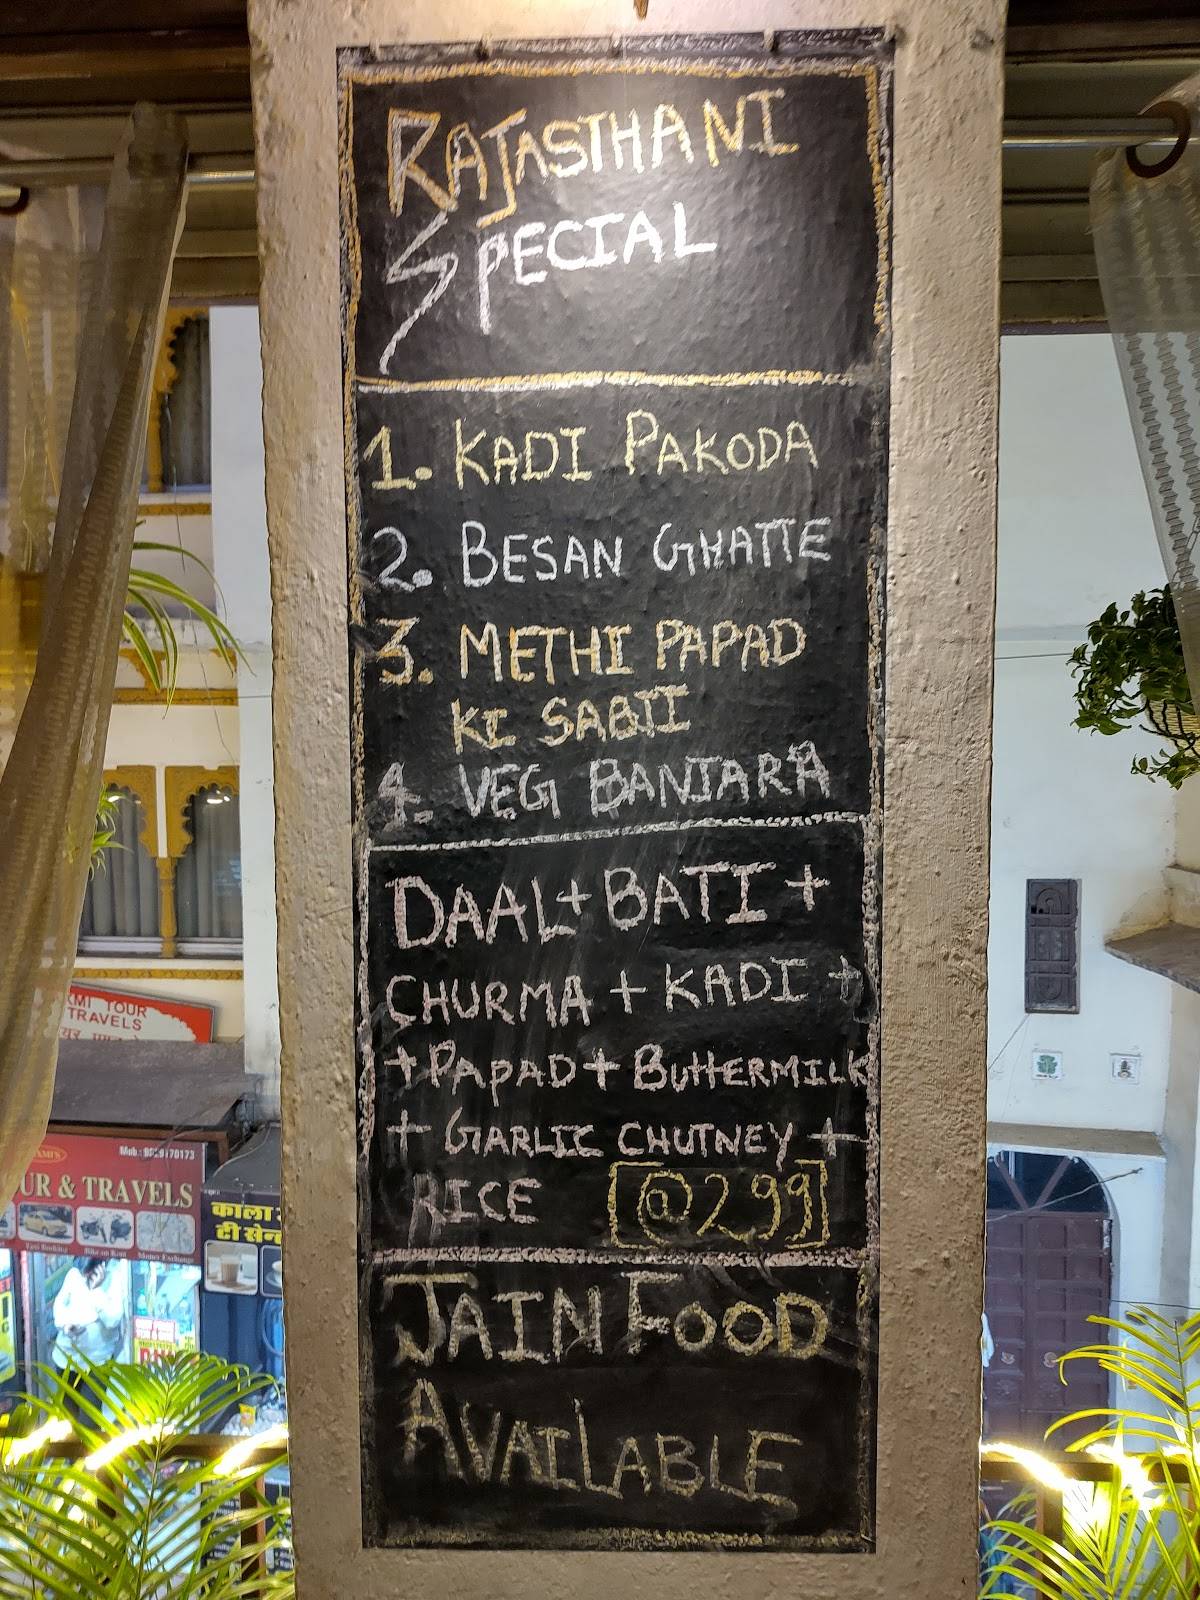 RAJASTHANI
SPECIAL
1. KADI PAKODA
2. BESAN GHATTE
3. METHI PAPAD
KI SABJI
4. VEG BANJARA
DAAL + BATI +
CHURMA + KADI +
+ PAPAD + BUTTERMILK
+ GARLIC CHUTNEY +
RICE [@299]
JAIN FOOD
AVAILABLE
TOUR
TRAVELS
Mob.: 9829170173
UR & TRAVELS
काला
टी सेन्